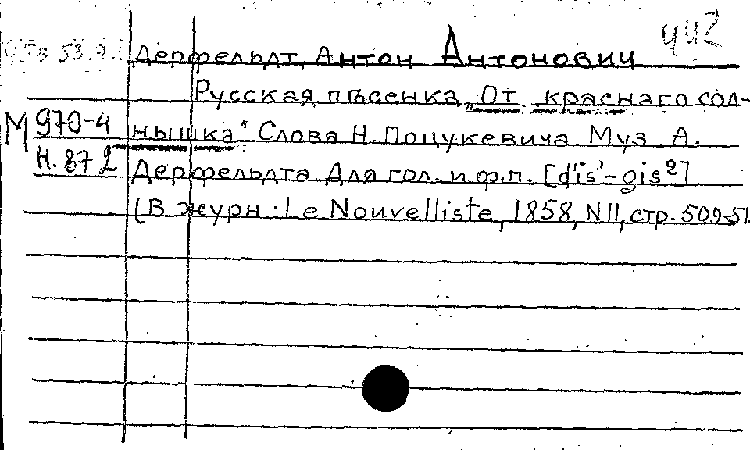 Дерфельдт, Антон Антонович
Русская пѣсенка „От краснаго сол-
М 970-4 нышка" Слова Н. Поцукевича Муз. А.
Н. 872 Дерфельдта Для гол. и ф.п. [dis¹-gis²]
(В журн.: Le Nouvelliste, 1858, N11, стр. 509-51